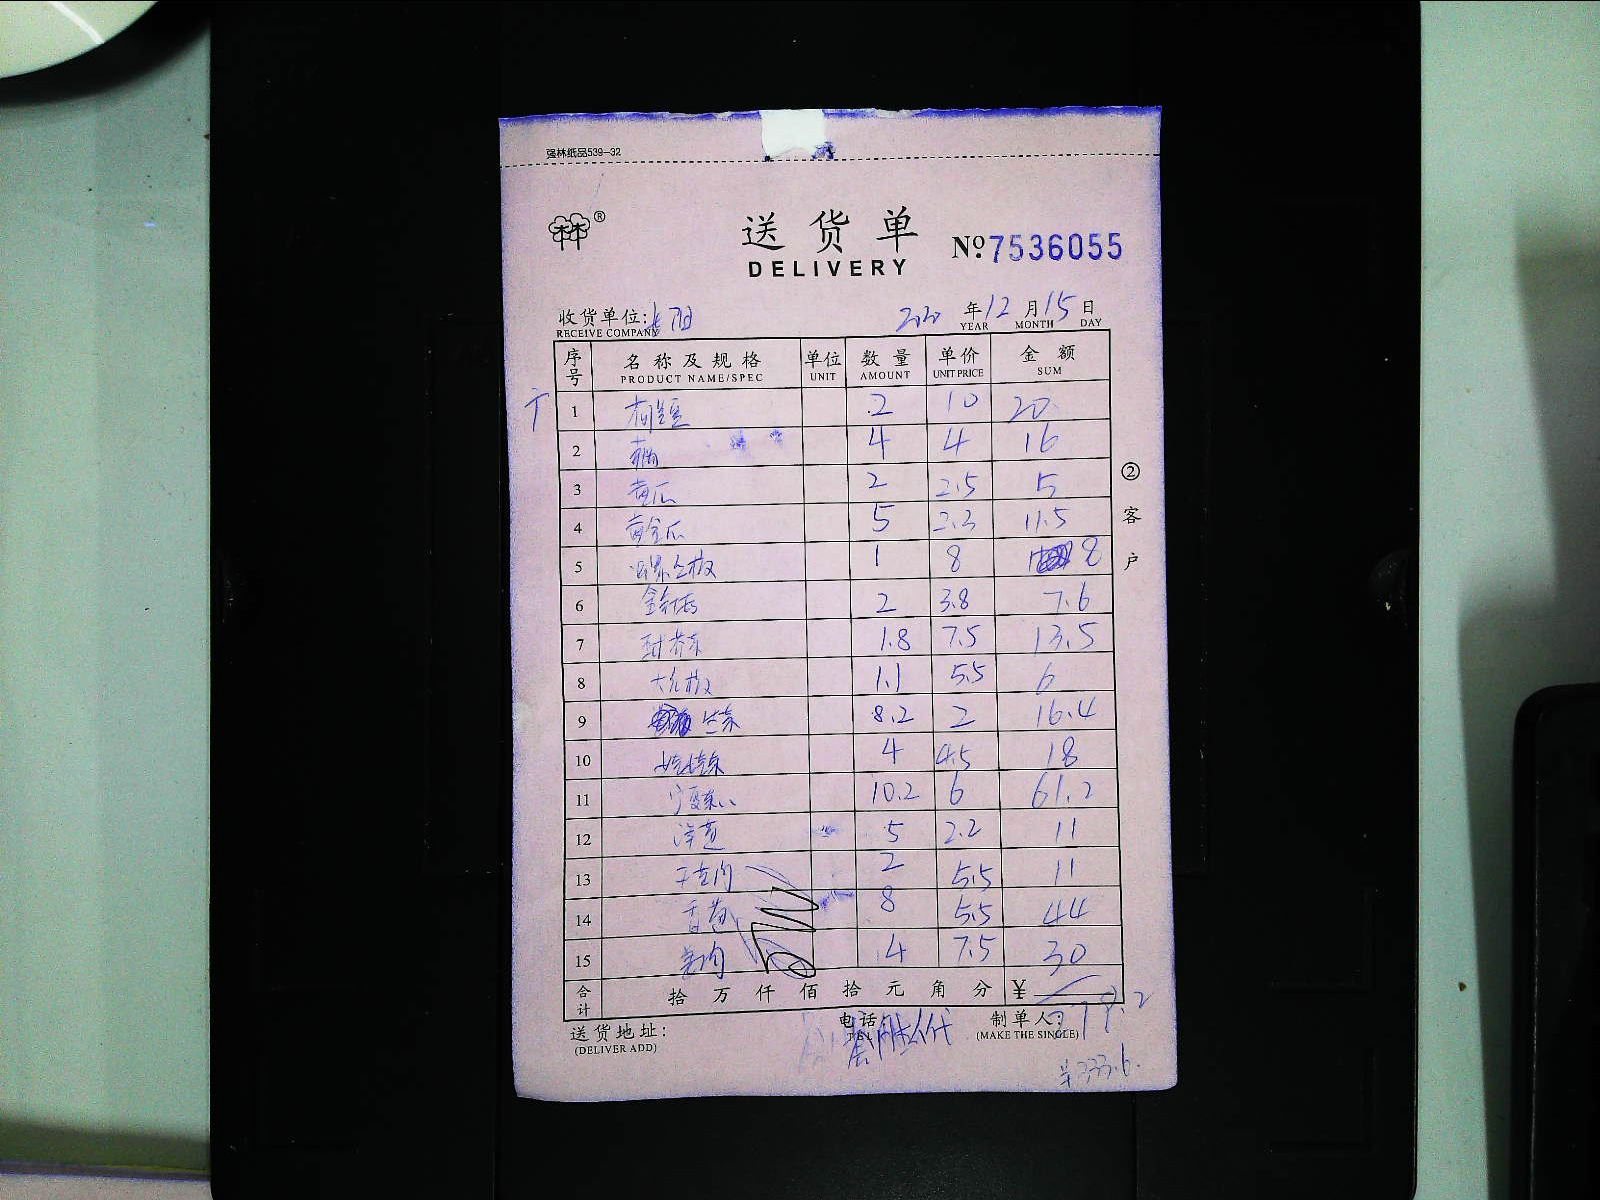 强林纸品539-32
®
送货单
DELIVERY
Nº 7536055
收货单位:
RECEIVE COMPANY
2020 年 12 月 15 日
YEAR MONTH DAY
序号 名称及规格 单位 数量 单价 金额
PRODUCT NAME/SPEC UNIT AMOUNT UNIT PRICE SUM
1 2 10 20
2 4 4 16
3 黄瓜 2 2.5 5
4 黄金瓜 5 2.3 11.5
5 1 8 8
6 2 3.8 7.6
7 1.8 7.5 13.5
8 1.1 5.5 6
9 生菜 8.2 2 16.4
10 娃娃菜 4 4.5 18
11 宁夏菜心 10.2 6 61.2
12 洋葱 5 2.2 11
13 2 5.5 11
14 8 5.5 44
15 4 7.5 30
合计 拾万仟佰拾元角分 ¥
②客户
送货地址:
(DELIVER ADD)
电话
制单人:
(MAKE THE SINGLE)
333.6